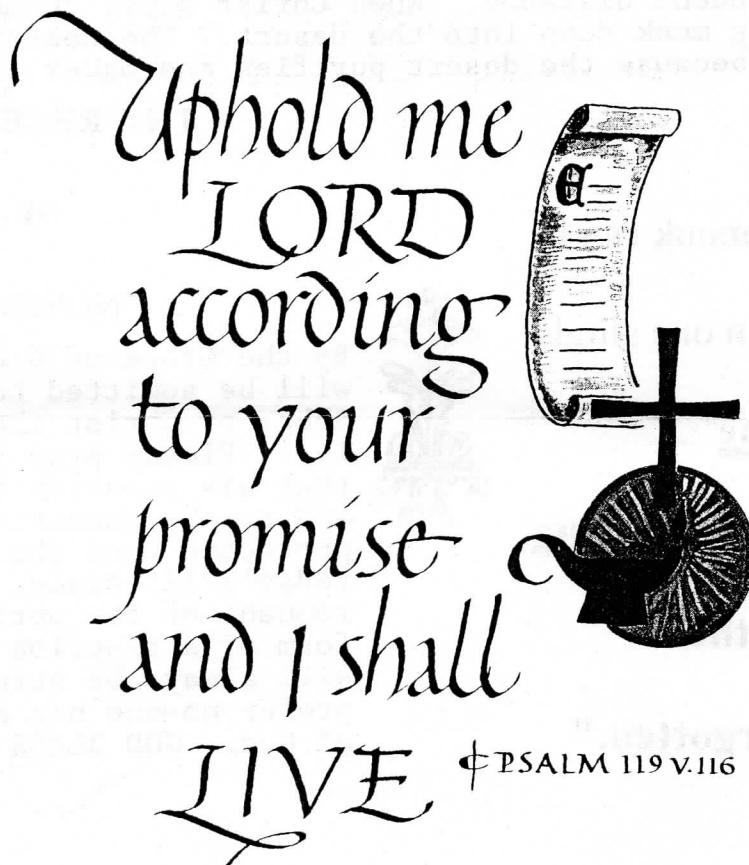 Uphold me
LORD
according
to your
promise
and I shall
LIVE
PSALM 119 v.116